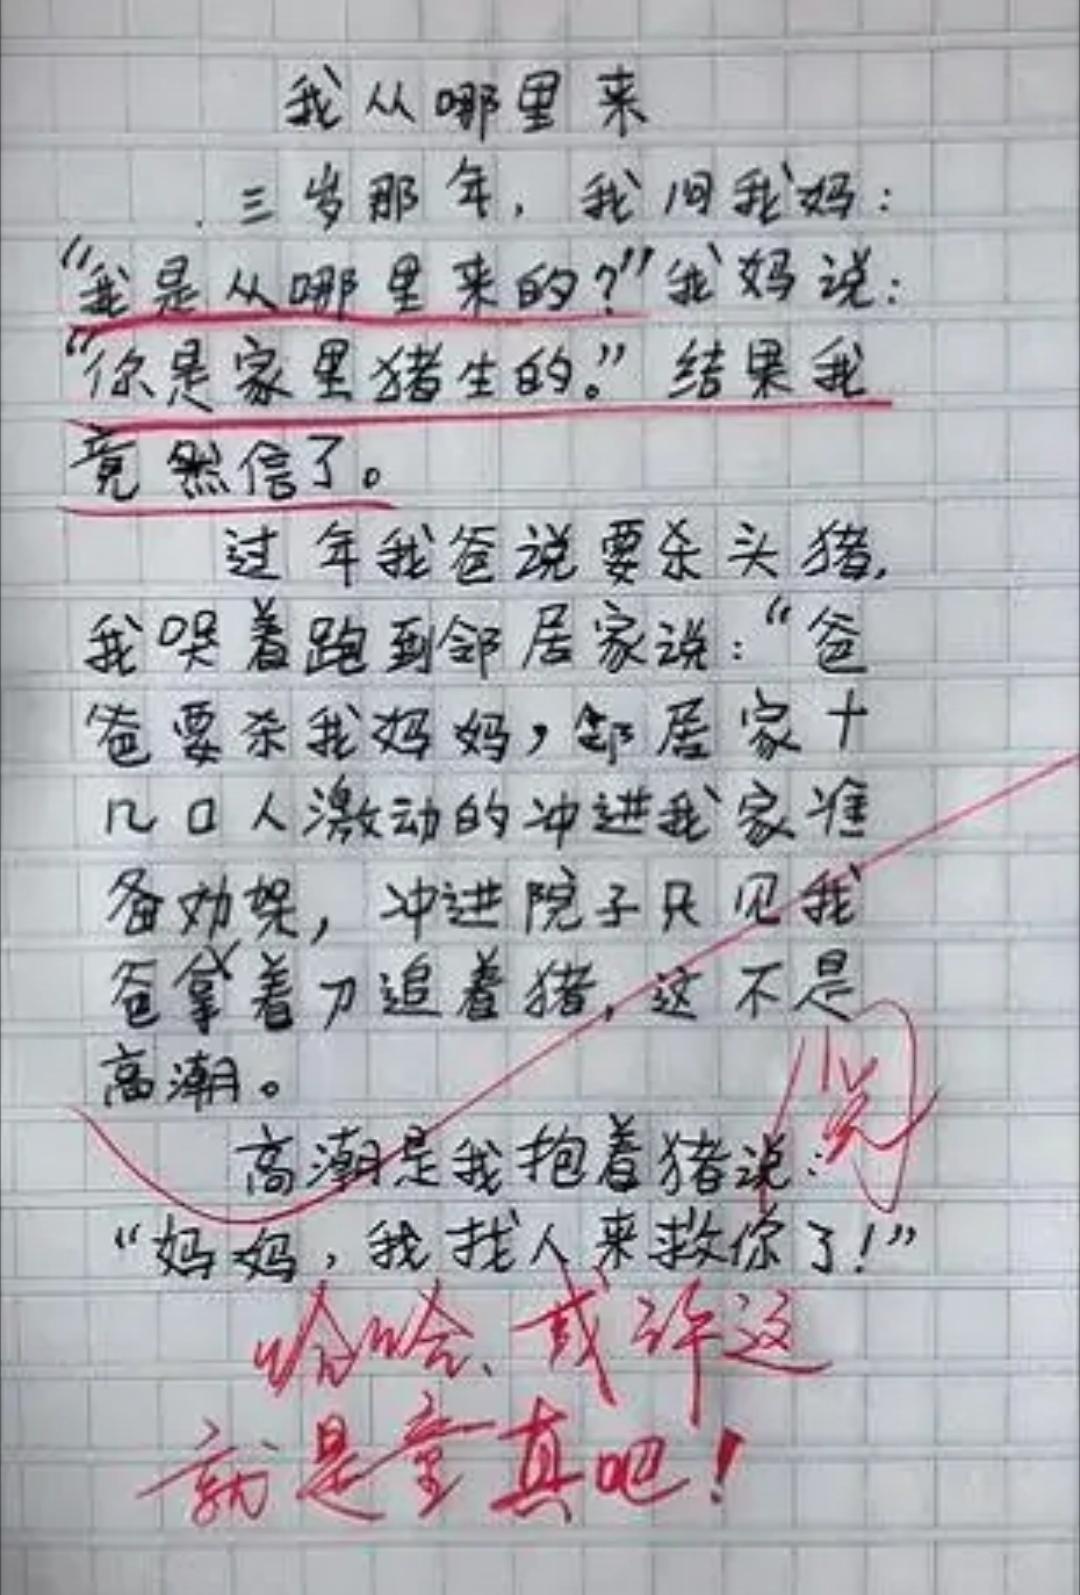 我从哪里来
三岁那年，我问我妈：
“我是从哪里来的？”我妈说：
“你是家里猪生的。”结果我
竟然信了。
过年我爸说要杀头猪，
我哭着跑到邻居家说：“爸
爸要杀我妈妈，邻居家十
几口人激动的冲进我家准
备劝架，冲进院子只见我
爸拿着刀追着猪，这不是
高潮。
阅
高潮是我抱着猪说：
“妈妈，我找人来救你了！”
哈哈、或许这
就是童真吧！